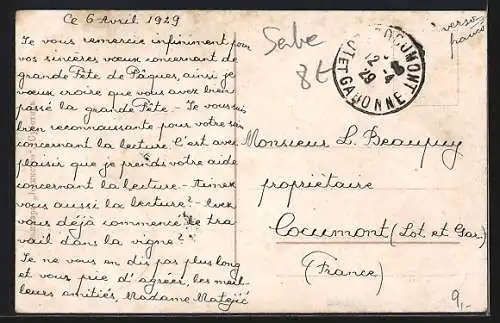 Ce 6 Avril 1929
Je vous remercie infiniment pour
vos sinceres vœux concernant de
grande Fête de Pâques, ainsi je
vœux croire que vous avez bien
passé la grande Fête. - Je vous suis
bien reconnaissante pour votre soin
concernant la lecture. C'est avec
plaisir que je prends votre aide
concernant la lecture. - Aimez
vous aussi la lecture? - Avez
vous déjà commencé le tra
vail dans la vigne?
Je ne vous en dis pas plus long
et vous prie d'agréer, les meil-
leurs amitiés, Madame Matejić
Serbe
8t
verso
franco
COCUMONT
LOT-ET-GARONNE
12
29 4
Monsieur L. Beaupuy
propriétaire
Cocumont (Lot et Gar.)
(France)
9,-